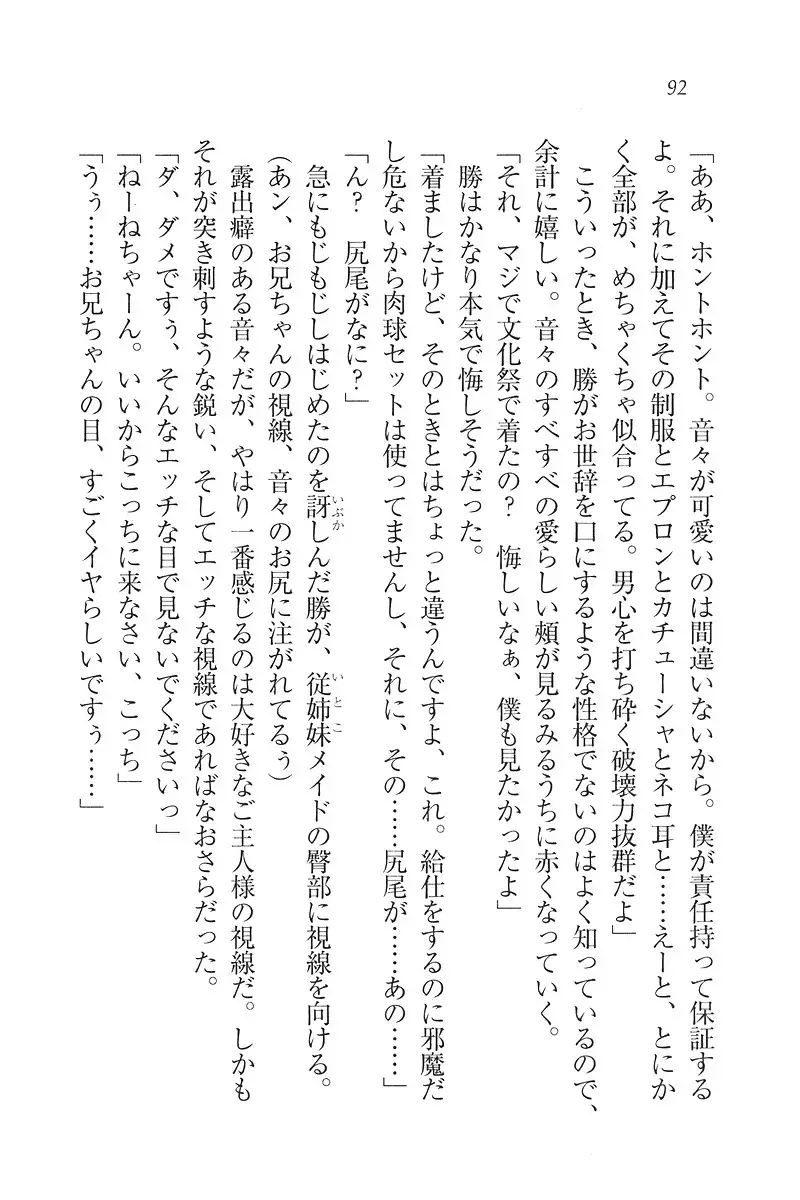 92
「ああ、ホントホント。音々が可愛いのは間違いないから。僕が責任持って保証する
よ。それに加えてその制服とエプロンとカチューシャとネコ耳と……えーと、とにか
く全部が、めちゃくちゃ似合ってる。男心を打ち砕く破壊力抜群だよ」
こういったとき、勝がお世辞を口にするような性格でないのはよく知っているので、
余計に嬉しい。音々のすべすべの愛らしい頬が見るみるうちに赤くなっていく。
「それ、マジで文化祭で着たの？　悔しいなぁ、僕も見たかったよ」
勝はかなり本気で悔しそうだった。
「着ましたけど、そのときとはちょっと違うんですよ、これ。給仕をするのに邪魔だ
し危ないから肉球セットは使ってませんし、それに、その……尻尾が……あの……」
「ん？　尻尾がなに？」
急にもじもじしはじめたのを訝しんだ勝が、従姉妹メイドの臀部に視線を向ける。
（あン、お兄ちゃんの視線、音々のお尻に注がれてるぅ）
露出癖のある音々だが、やはり一番感じるのは大好きなご主人様の視線だ。しかも
それが突き刺すような鋭い、そしてエッチな視線であればなおさらだった。
「ダ、ダメですぅ、そんなエッチな目で見ないでくださいっ」
「ねーねちゃーん。いいからこっちに来なさい、こっち」
「うぅ……お兄ちゃんの目、すごくイヤらしいですぅ……」